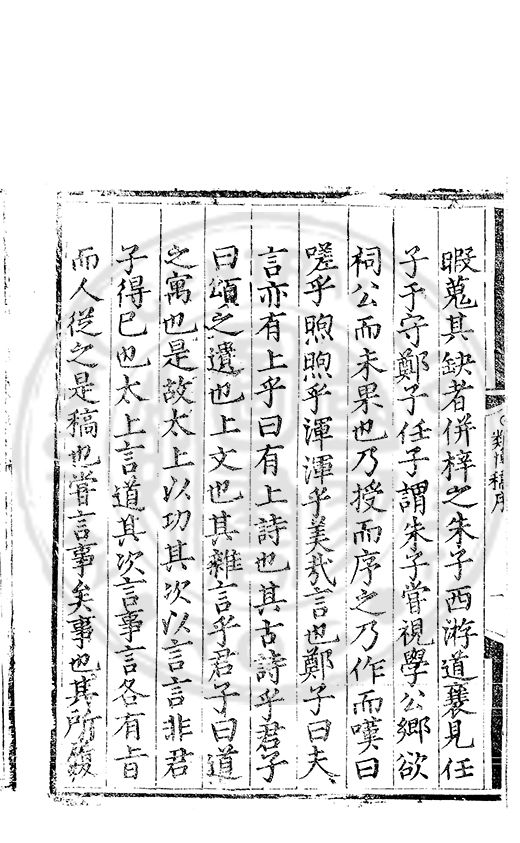 暇蒐其缺者併梓之朱子西游道襄見任
子于守鄭子任子謂朱子嘗視學公鄉欲
祠公而未果也乃授而序之乃作而嘆曰
嗟乎喣喣乎渾渾乎美哉言也鄭子曰夫
言亦有上乎曰有上詩也其古詩乎君子
曰頌之遺也上文也其雜言乎君子曰道
之寓也是故太上以功其次以言言非君
子得已也太上言道其次言事言各有旨
而人從之是稿也嘗言事矣事也其所履
類博稿序